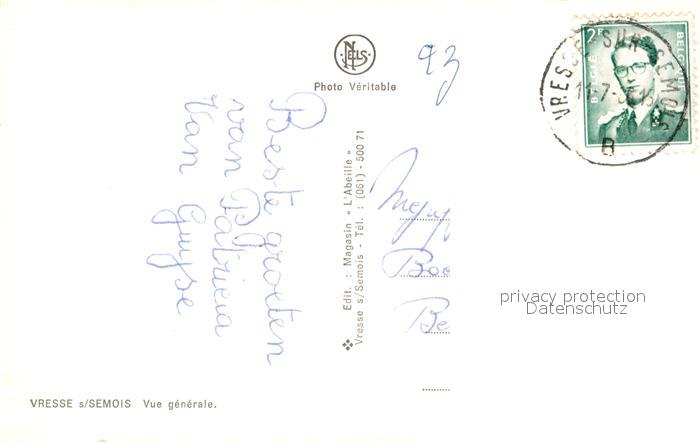 NELS
Photo Véritable
93
2F
BELGIË
BELGIQUE
VRESSE SUR SEMOIS
B
Beste groeten
van Patricia
Van Guyse
Edit. : Magasin « L'Abeille »
Vresse s/Semois - Tél. : (061) - 500 71
Boe
Be
privacy protection
Datenschutz
VRESSE s/SEMOIS Vue générale.